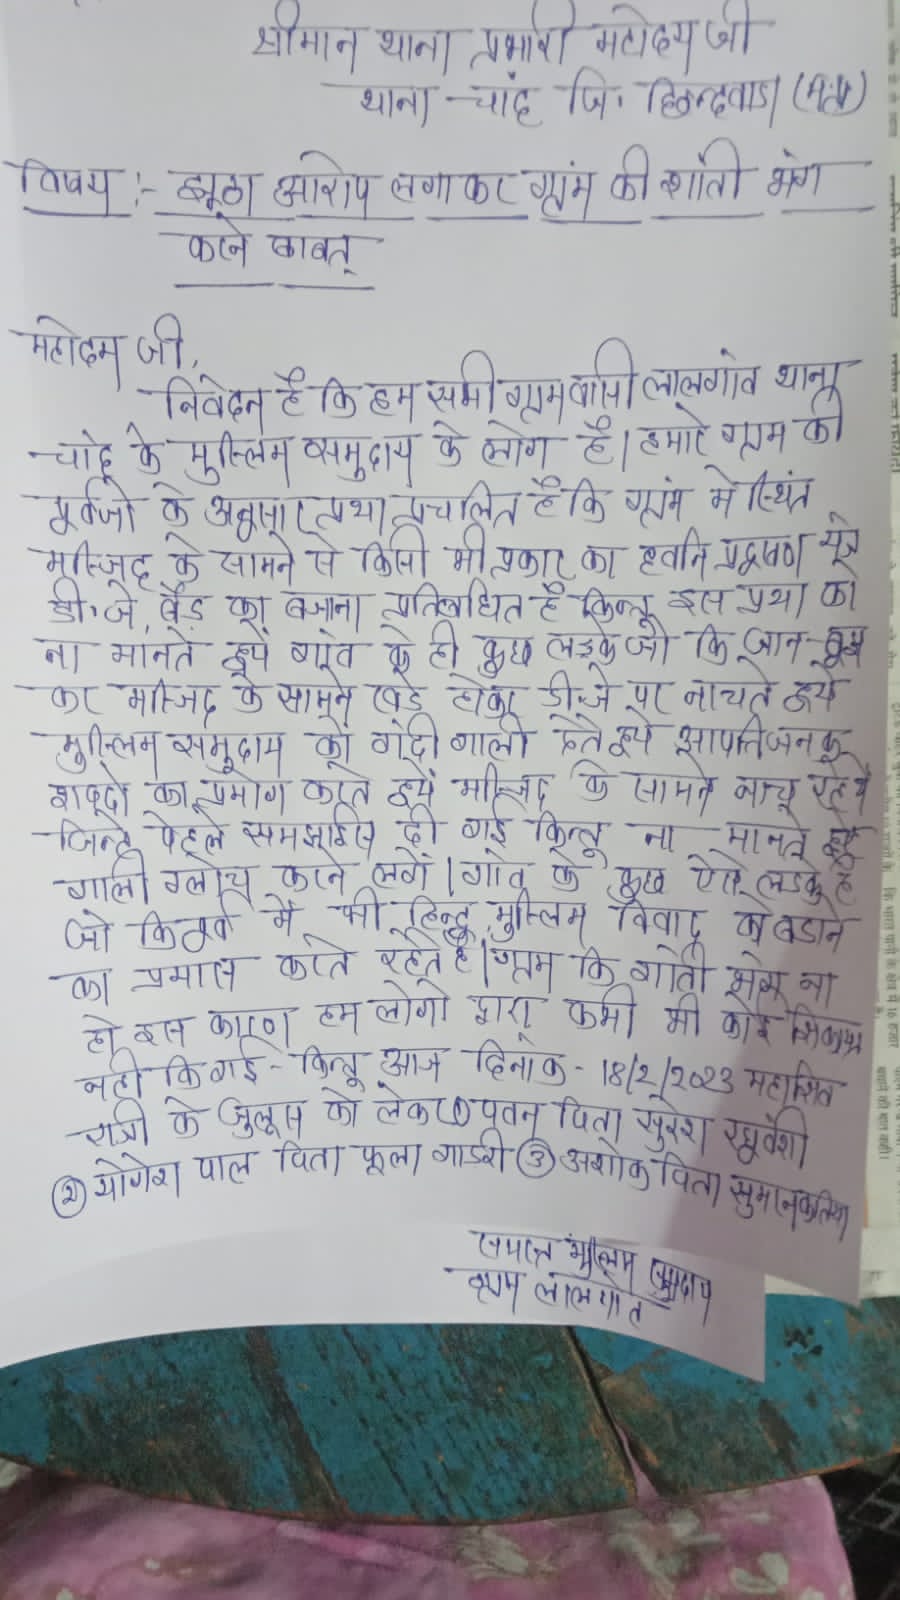 श्रीमान थाना प्रभारी महोदय जी
थाना - चांद जि. छिन्दवाडा (म.प्र)
विषय :- झूठा आरोप लगाकर ग्राम की शांती भंग
करने बावत्
महोदय जी,
निवेदन है कि हम सभी ग्रामवासी लालगांव थाना
चांद के मुस्लिम समुदाय के लोग है। हमारे ग्राम की
पूर्वजो के अनुसार प्रथा प्रचलित है कि ग्राम मे स्थित
मस्जिद के सामने से किसी भी प्रकार का ध्वनि प्रदूषण
डी.जे, बैंड का बजाना प्रतिबंधित है किन्तु इस प्रथा को
ना मानते हुये गांव के ही कुछ लड़के जो कि जान-बुझ
कर मस्जिद के सामने खडे होकर डी.जे पर नाचते हुये
मुस्लिम समुदाय को गंदी गाली देते हुये आपत्तिजनक
शब्दो का प्रयोग करते हुये मस्जिद के सामने नाच रहे थे
जिन्हे पेहले समझाईस दी गई किन्तु ना मानते हुये
गाली ग्लोच करने लगे। गांव के कुछ ऐसे लडके है
जो कि पूर्व में भी हिन्दू मुस्लिम विवाद को बडाने
का प्रयास करते रहते है। ग्राम कि शांती भंग ना
हो इस कारण हम लोगो द्वारा कभी भी कोई शिकायत
नही कि गई - किन्तु आज दिनांक - 18/2/2023 महाशिव
रात्री के जुलूस को लेकर ① पवन पिता सुरेश रघुवंशी
② योगेश पाल पिता फूला गाडरी ③ अशोक पिता
समस्त मुस्लिम समुदाय
ग्राम लालगांव